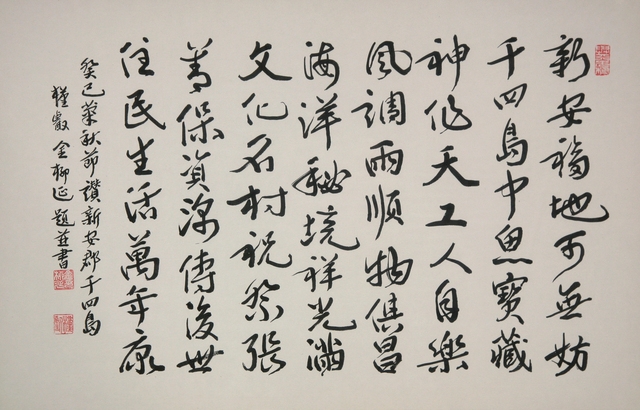 新安福地可無妨
千四島中魚寶藏
神作天工人自樂
風調雨順物俱昌
海洋秘境祥光滿
文化名村祝祭張
善保資源傳後世
住民生活萬年康
癸巳菊秋節讚新安郡千四島
槿岩 金柳延 題並書